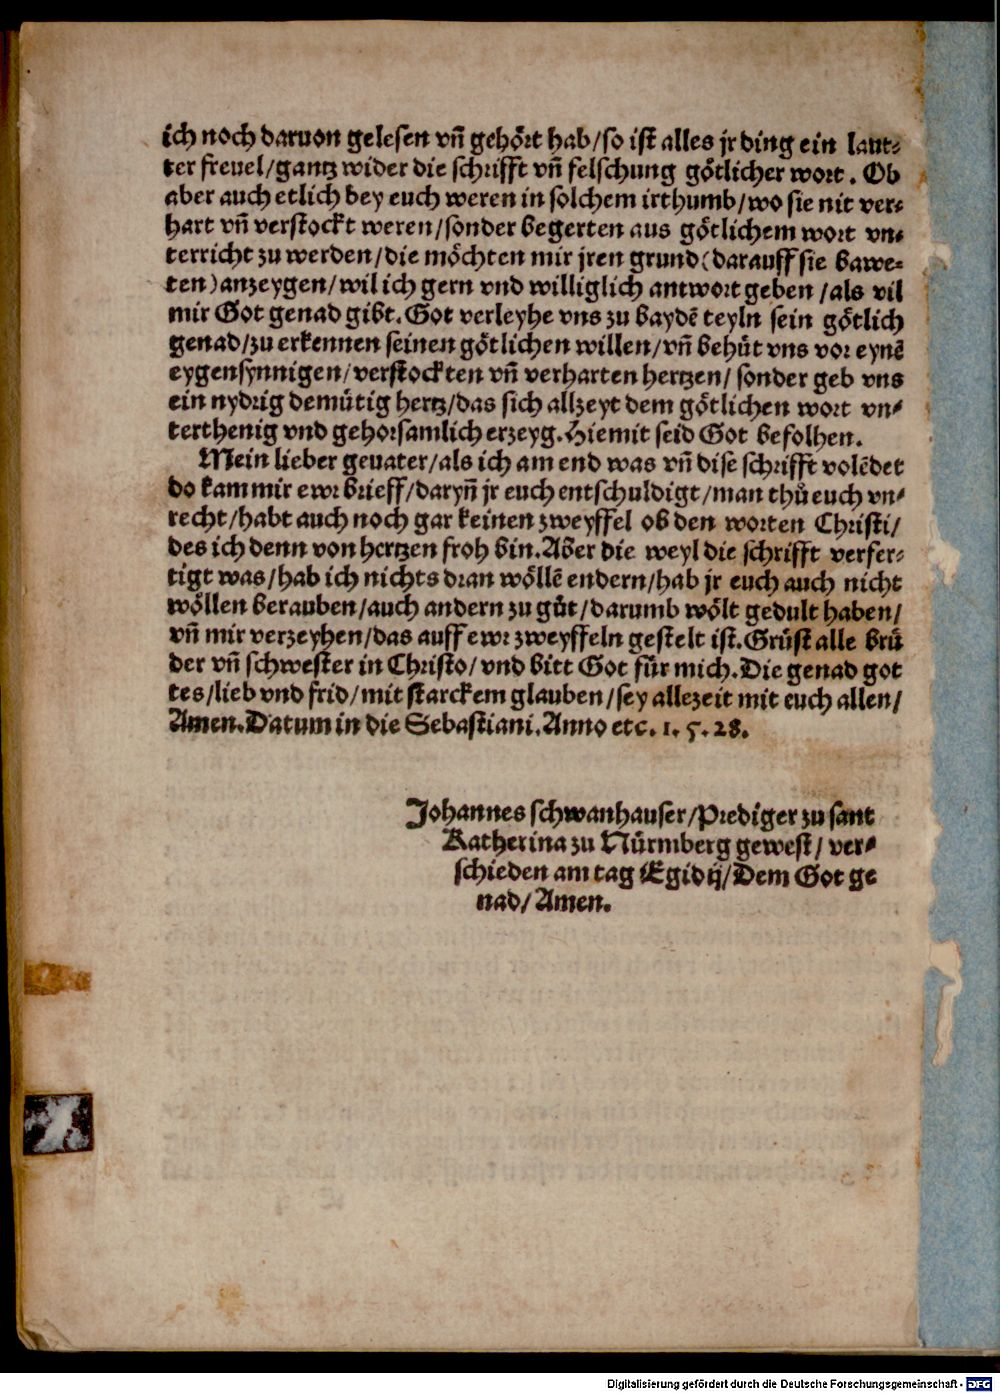 ich noch daruon gelesen vñ gehört hab/so ist alles jr ding ein laut-
ter freuel/gantz wider die schrifft vñ felschung götlicher wort. Ob
aber auch etlich bey euch weren in solchem irthumb/wo sie nit ver-
hart vñ verstockt weren/sonder begerten aus götlichem wort vn-
terricht zu werden/die möchten mir jren grund(darauff sie bawe-
ten)anzeygen/wil ich gern vnd williglich antwort geben/als vil
mir Got genad gibt. Got verleyhe vns zu baydē teyln sein götlich
genad/zu erkennen seinen götlichen willen/vñ behüt vns vor eynē
eygensynnigen/verstockten vñ verharten hertzen/sonder geb vns
ein nydrig demütig hertz/das sich allzeyt dem götlichen wort vn-
terthenig vnd gehorsamlich erzeyg. Hiemit seid Got befolhen.
Mein lieber geuater/als ich am end was vñ dise schrifft volēdet
do kam mir ewr brieff/daryñ jr euch entschuldigt/man thů euch vn-
recht/habt auch noch gar keinen zweyffel ob den worten Christi/
des ich denn von hertzen froh bin. Aber die weyl die schrifft verfer-
tigt was/hab ich nichts dran wöllē endern/hab jr euch auch nicht
wöllen berauben/auch andern zu gůt/darumb wölt gedult haben/
vñ mir verzeyhen/das auff ewr zweyffeln gestelt ist. Grüst alle brü
der vñ schwester in Christo/vnd bitt Got für mich. Die genad got
tes/lieb vnd frid/mit starckem glauben/sey allezeit mit euch allen/
Amen. Datum in die Sebastiani. Anno etc. 1. 5. 28.
Johannes schwanhauser/Prediger zu sant
Katherina zu Nürmberg gewest/ver-
schieden am tag Egidij/Dem Got ge
nad/Amen.
Digitalisierung gefördert durch die Deutsche Forschungsgemeinschaft - DFG